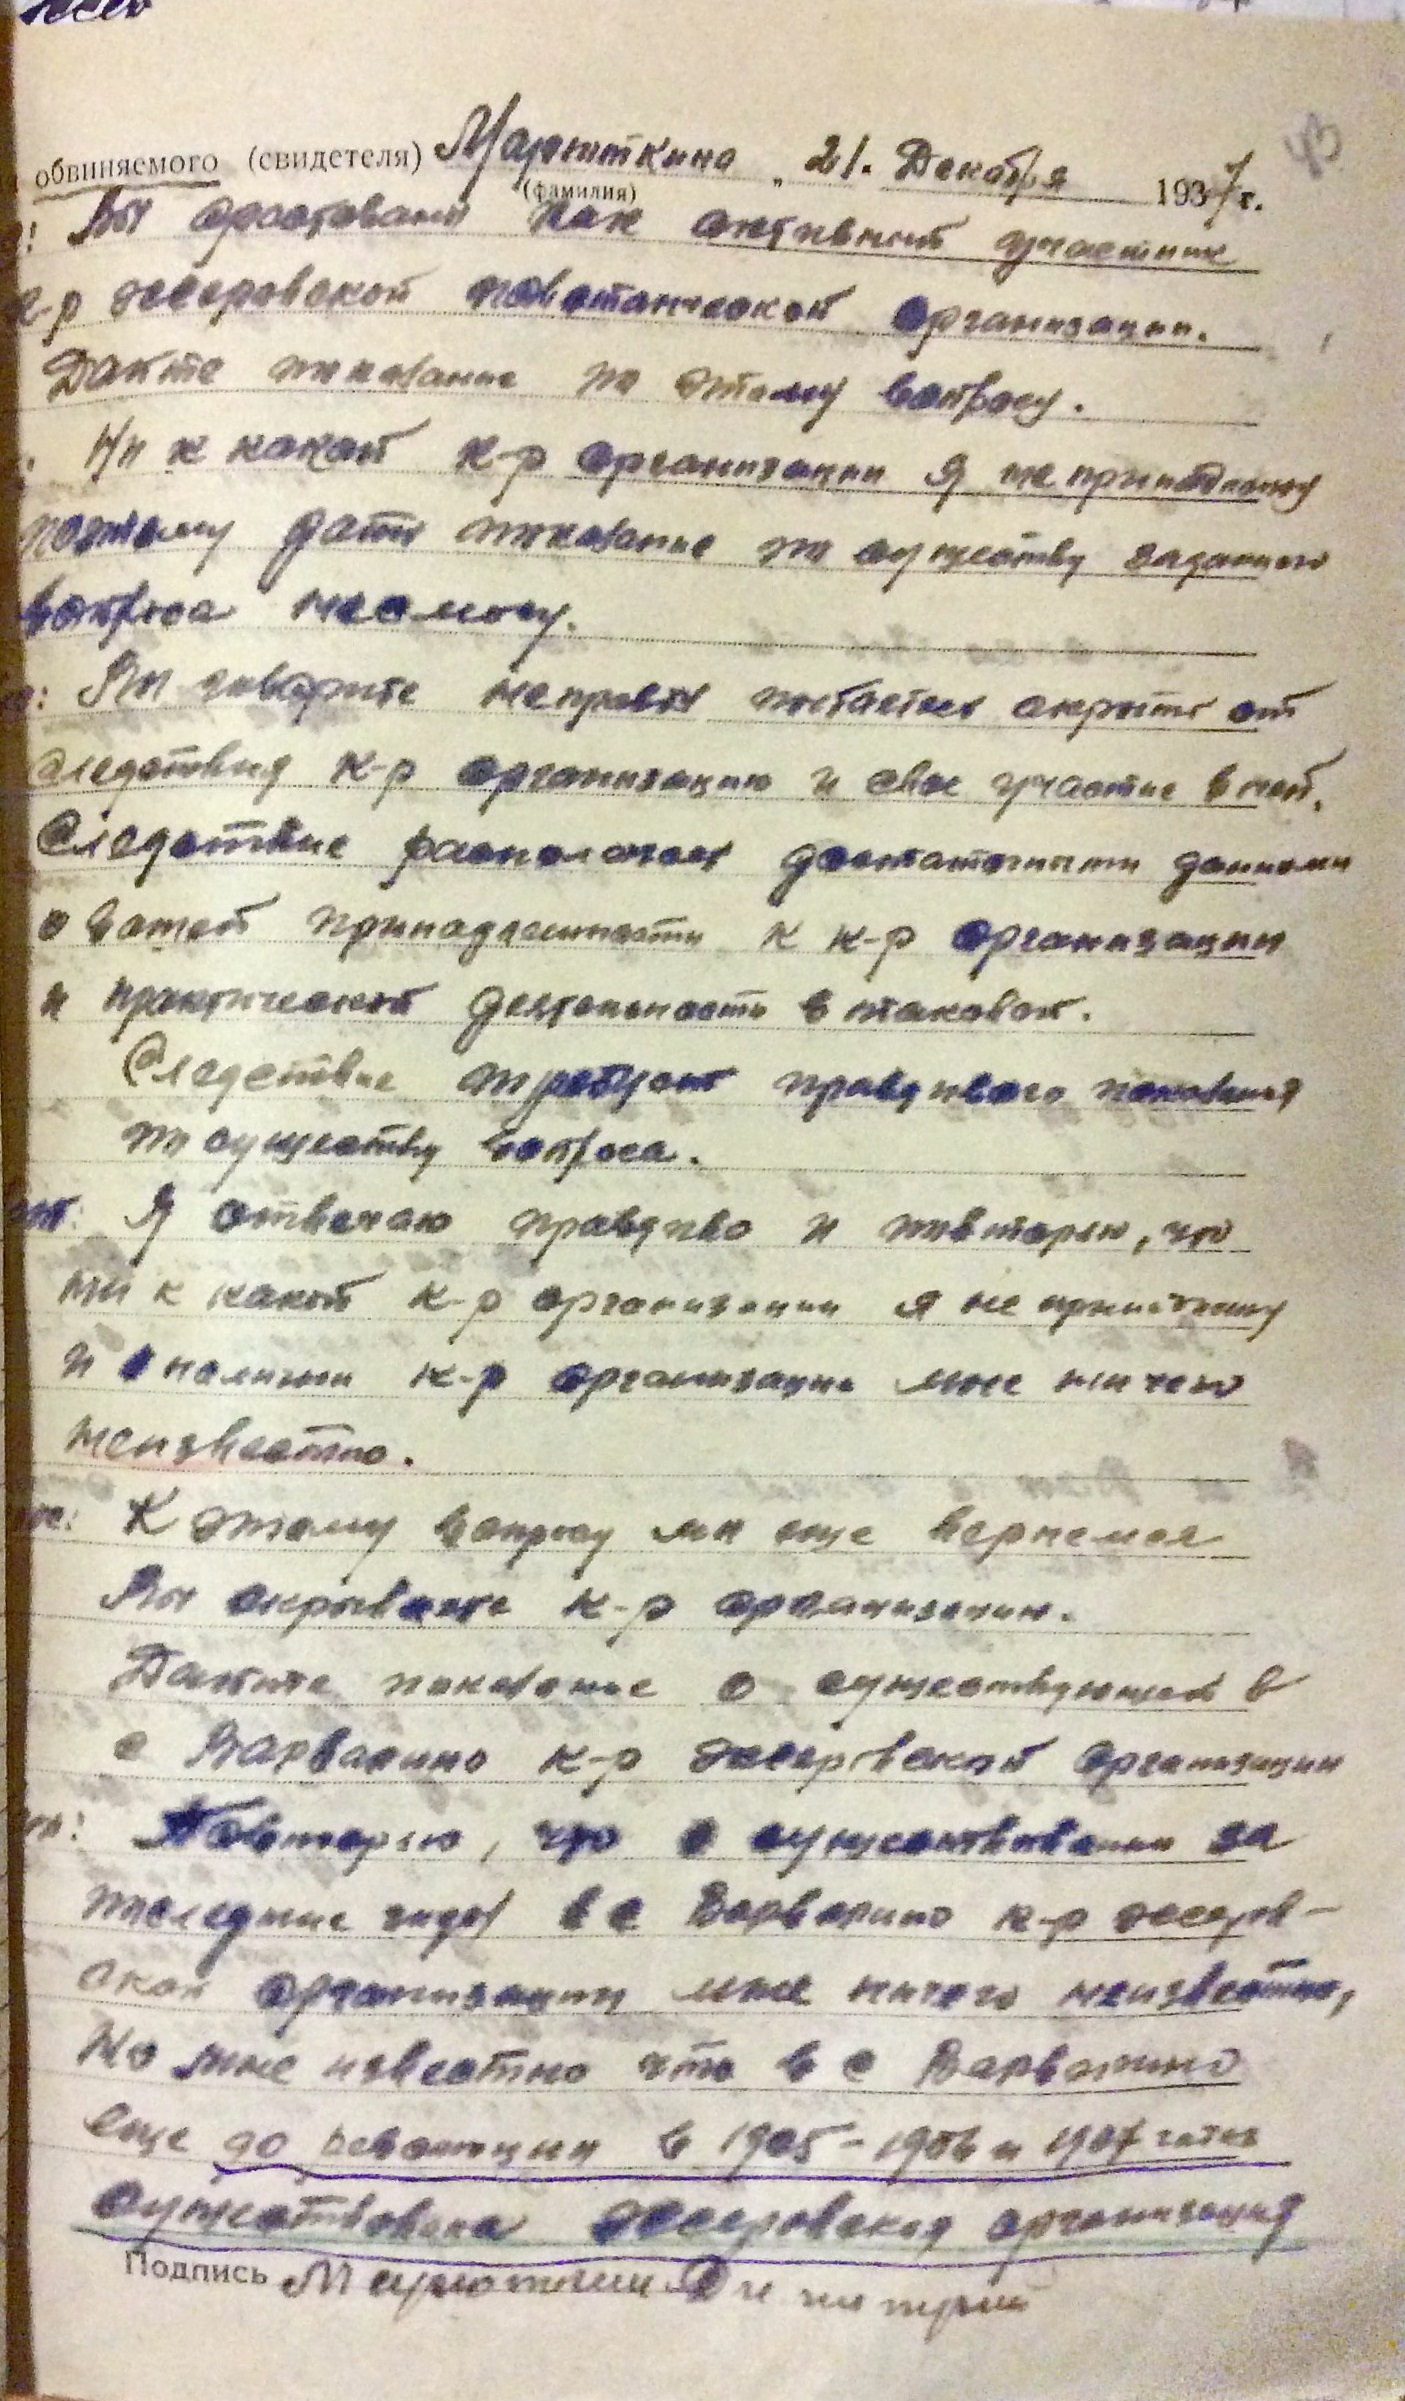 43
обвиняемого (свидетеля) Марюткина „ 21. Декабря 1937 г.
(фамилия)
: Вы арестованы как активный участник
к-р эсеровской повстанческой организации.
Дайте показание по этому вопросу.
Ни к какой к-р организации я не принадлежу
поэтому дать показание по существу заданного
вопроса не могу.
: Вы говорите неправду пытаетесь скрыть от
следствия к-р организацию и свое участие в ней.
Следствие располагает достаточными данными
о вашей принадлежности к к-р организации
и практической деятельности в таковой.
Следствие требует правдивого показания
по существу вопроса.
: Я отвечаю правдиво и повторяю, что
ни к какой к-р организации я не принадлежу
и о наличии к-р организации мне ничего
неизвестно.
: К этому вопросу мы еще вернемся
Вы скрываете к-р организацию.
Дайте показание о существующей в
с Варварино к-р эсеровской организации
: Повторяю, что о существовании за
последние годы в с Варварино к-р эсеров-
ской организации мне ничего неизвестно,
Но мне известно что в с Варварино
еще до революции в 1905-1906 и 1907 годах
существовала эсеровская организация
Подпись Марюткин Димитрий